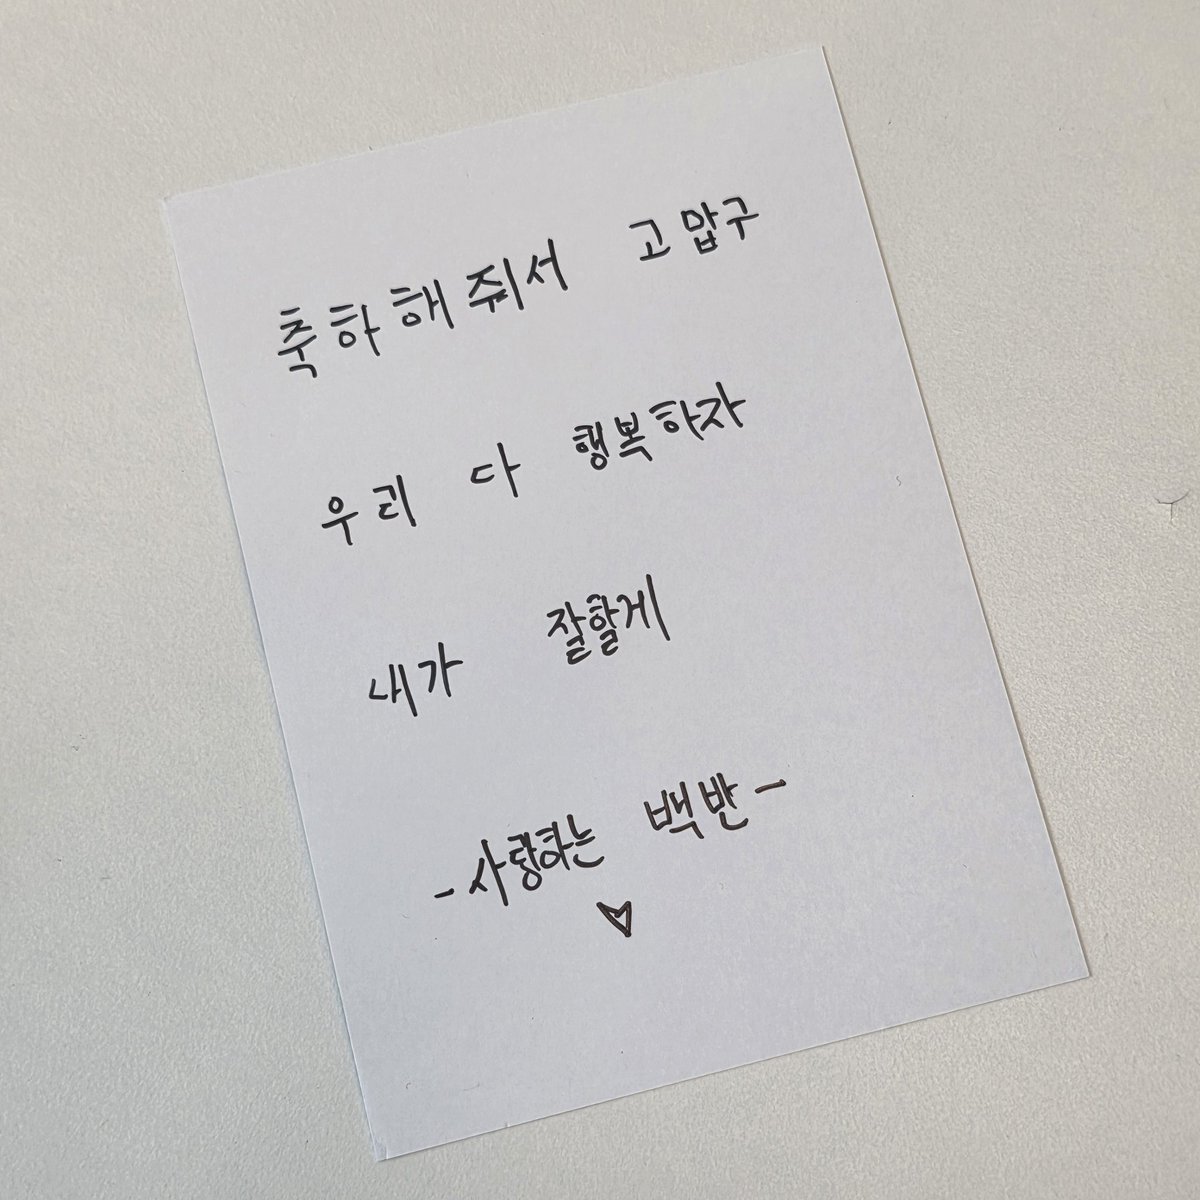 축하해줘서 고맙구
우리 다 행복하자
내가 잘할게
-사랑하는 백반-
♡